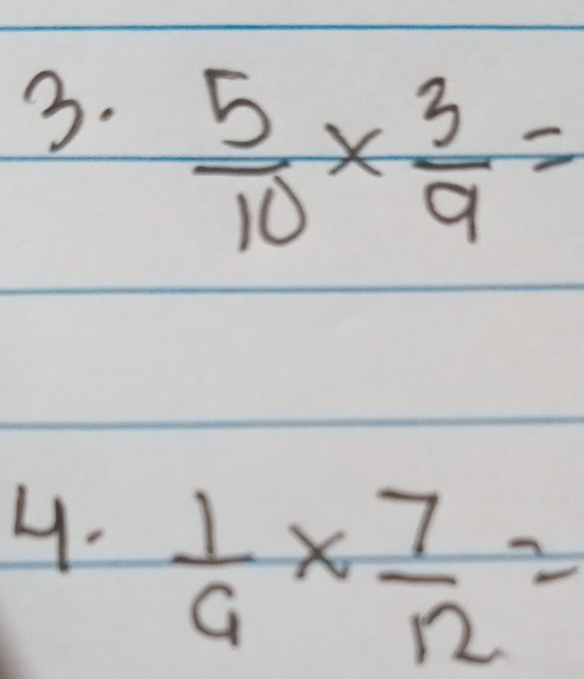 3. 5/10 × 3/9 =
4. 1/9 × 7/12 =